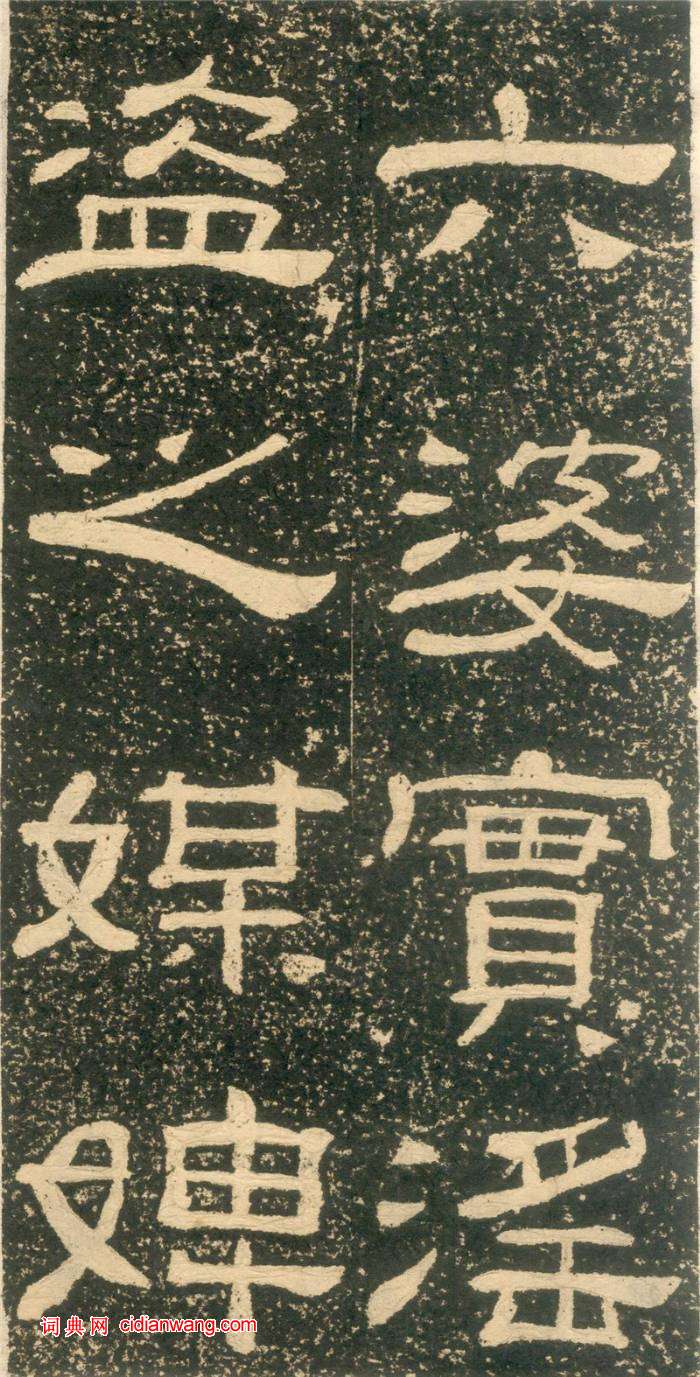 六婆實淫
盗之媒婢
词典网 cidianwang.com